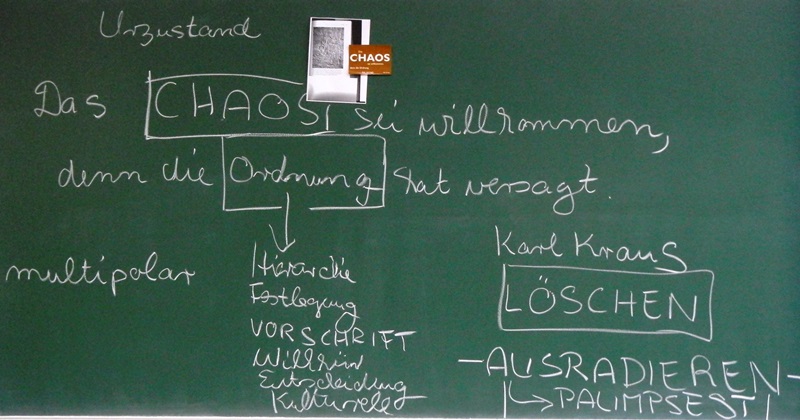 Urzustand
CHAOS
Das CHAOS sei willkommen,
denn die Ordnung hat versagt.
Karl Kraus
multipolar
Hierarchie
Festlegung
VORSCHRIFT
Willkür
Entscheidung
Kulturelle
LÖSCHEN
-AUSRADIEREN-
PALIMPSEST